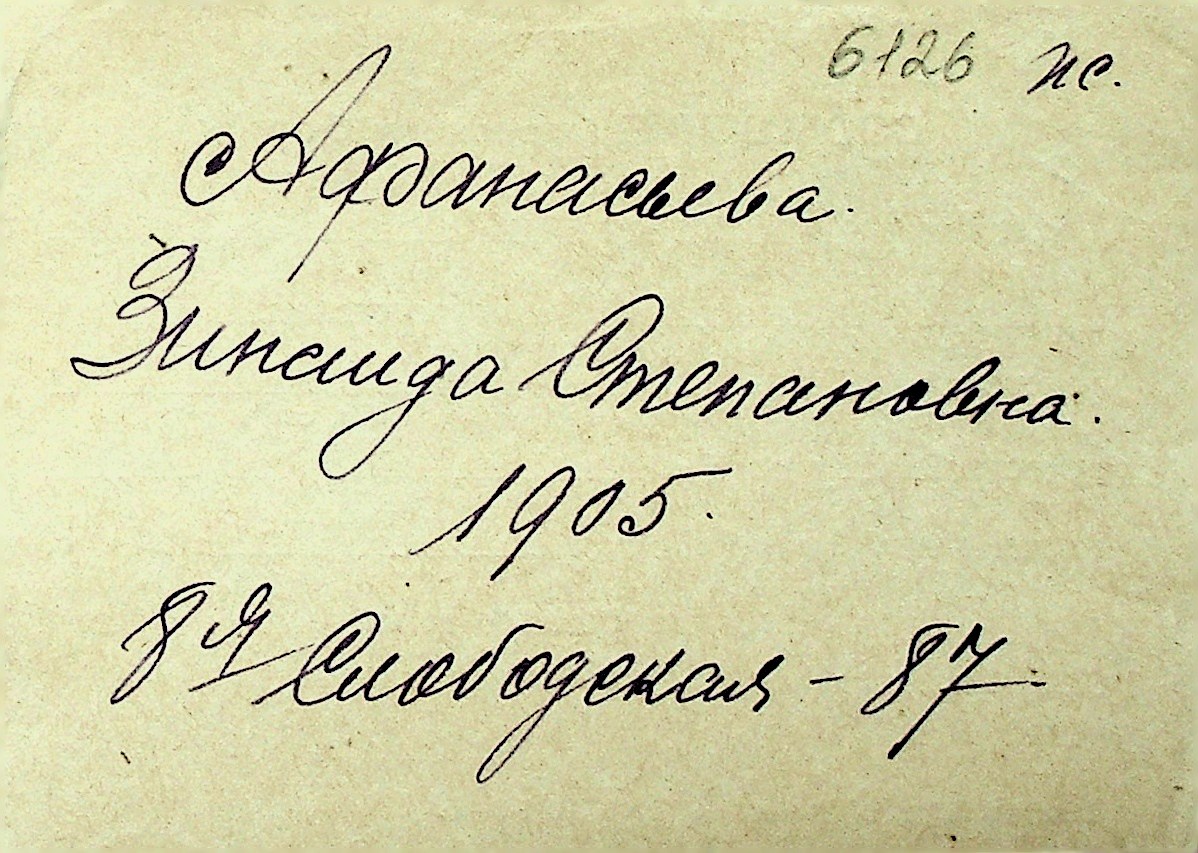 6126 пс.
Афанасьева.
Зинаида Степановна.
1905.
8я Слободская - 87